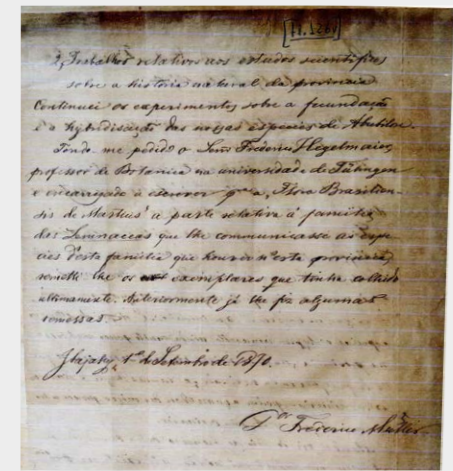 2, Trabalhos relativos aos estudos scientificos
sobre a historia natural da provincia
Continuei os experimentos sobre a fecundação
e a hybridisação das nossas especies de Abutilon.
Tendo me pedido o Senr Frederico Hegelmaier,
professor de Botanica na universidade de Tübingen
e encarregado a escrever pa a "Flora Brasilien-
sis de Martius" a parte relativa á familia
das Lemnaceas que lhe communicasse as espe-
cies d'esta familia que houver n'esta provincia,
remetti lhe os exemplares que tinha colhido
ultimamente. Anteriormente já lhe fiz algumas
remessas.
Itajahy, 1o de Setembro de 1870.
Dor Frederico Müller